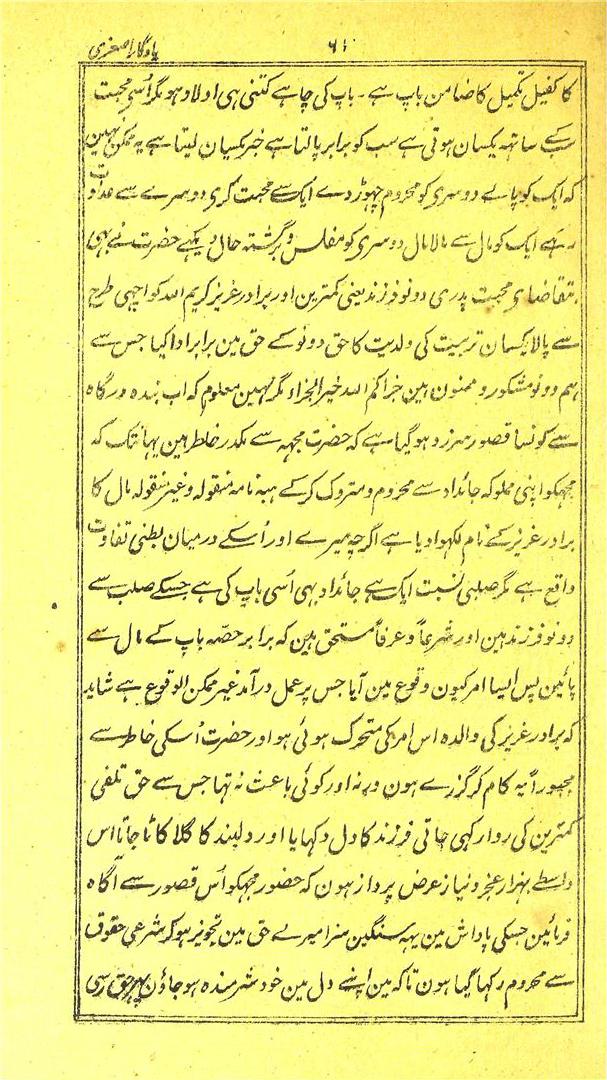 ۶۱ یادگار اصغری
کا کفیل تکمیل کا ضامن باپ ہے ۔ باپ کی چاہے کتنی ہی اولاد ہو مگر اُسکی محبت
سب کے ساتہہ یکسان ہوتی ہے سب کو برابر پالتا ہے خبر یکسان لیتا ہے یہ ممکن نہین
کہ ایک کو پالے دوسری کو محروم چہوڑ دے ایک سے محبت کری دوسرے سے عداوت
رکہے ایک کو مال سے مالامال دوسری کو مفلس و برگشتہ حال دیکہے حضرت نے بہی
بتقاضاے محبت پدری دونو فرزند یعنی کمترین اور برادر عزیز کریم اللہ کو اچہی طرح
سے پالا یکسان تربیت کی ولدیت کا حق دونو کے حق مین برابر ادا کیا جس سے
ہم دونو مشکور و ممنون ہین جزاکم اللہ خیر الجزاء مگر نہین معلوم کہ اب بندہ درگاہ
سے کونسا قصور سرزد ہو گیا ہے کہ حضرت مجہہ سے مکدر خاطر ہین یہانتک کہ
مجہکو اپنی مملوکہ جائداد سے محروم و متروک کر کے ہبہ نامہ منقولہ و غیر منقولہ مال کا
برادر عزیز کے نام لکہوا دیا ہے اگرچہ میرے اور اُسکے درمیان بطنی تفاوت
واقع ہے مگر صلبی نسبت ایک ہے جائداد بہی اُسی باپ کی ہے جسکے صلب سے
دونو فرزند ہین اور شرعاً و عرفاً مستحق ہین کہ برابر حصّہ باپ کے مال سے
پائین پس ایسا امر کیون وقوع مین آیا جس پر عمل درآمد غیر ممکن الوقوع ہے شاید
کہ برادر عزیز کی والدہ اس امر کی متحرک ہوئی ہو اور حضرت اُسکی خاطر سے
مجبوراً یہ کام کر گزرے ہون ورنہ اور کوئی باعث نہ تہا جس سے حق تلفی
کمترین کی روا رکہی جاتی فرزند کا دل دکہایا اور دلبند کا گلا کاٹا جاتا اس
واسطے بہزار عجز و نیاز عرض پرداز ہون کہ حضور مجہکو اُس قصور سے آگاہ
فرمائین جسکی پاداش مین یہہ سنگین سزا میرے حق مین تجویز ہو کر شرعی حقوق
سے محروم رکہا گیا ہون تاکہ مین اپنے دل مین خود شرمندہ ہو جاؤن پہر حق رسی